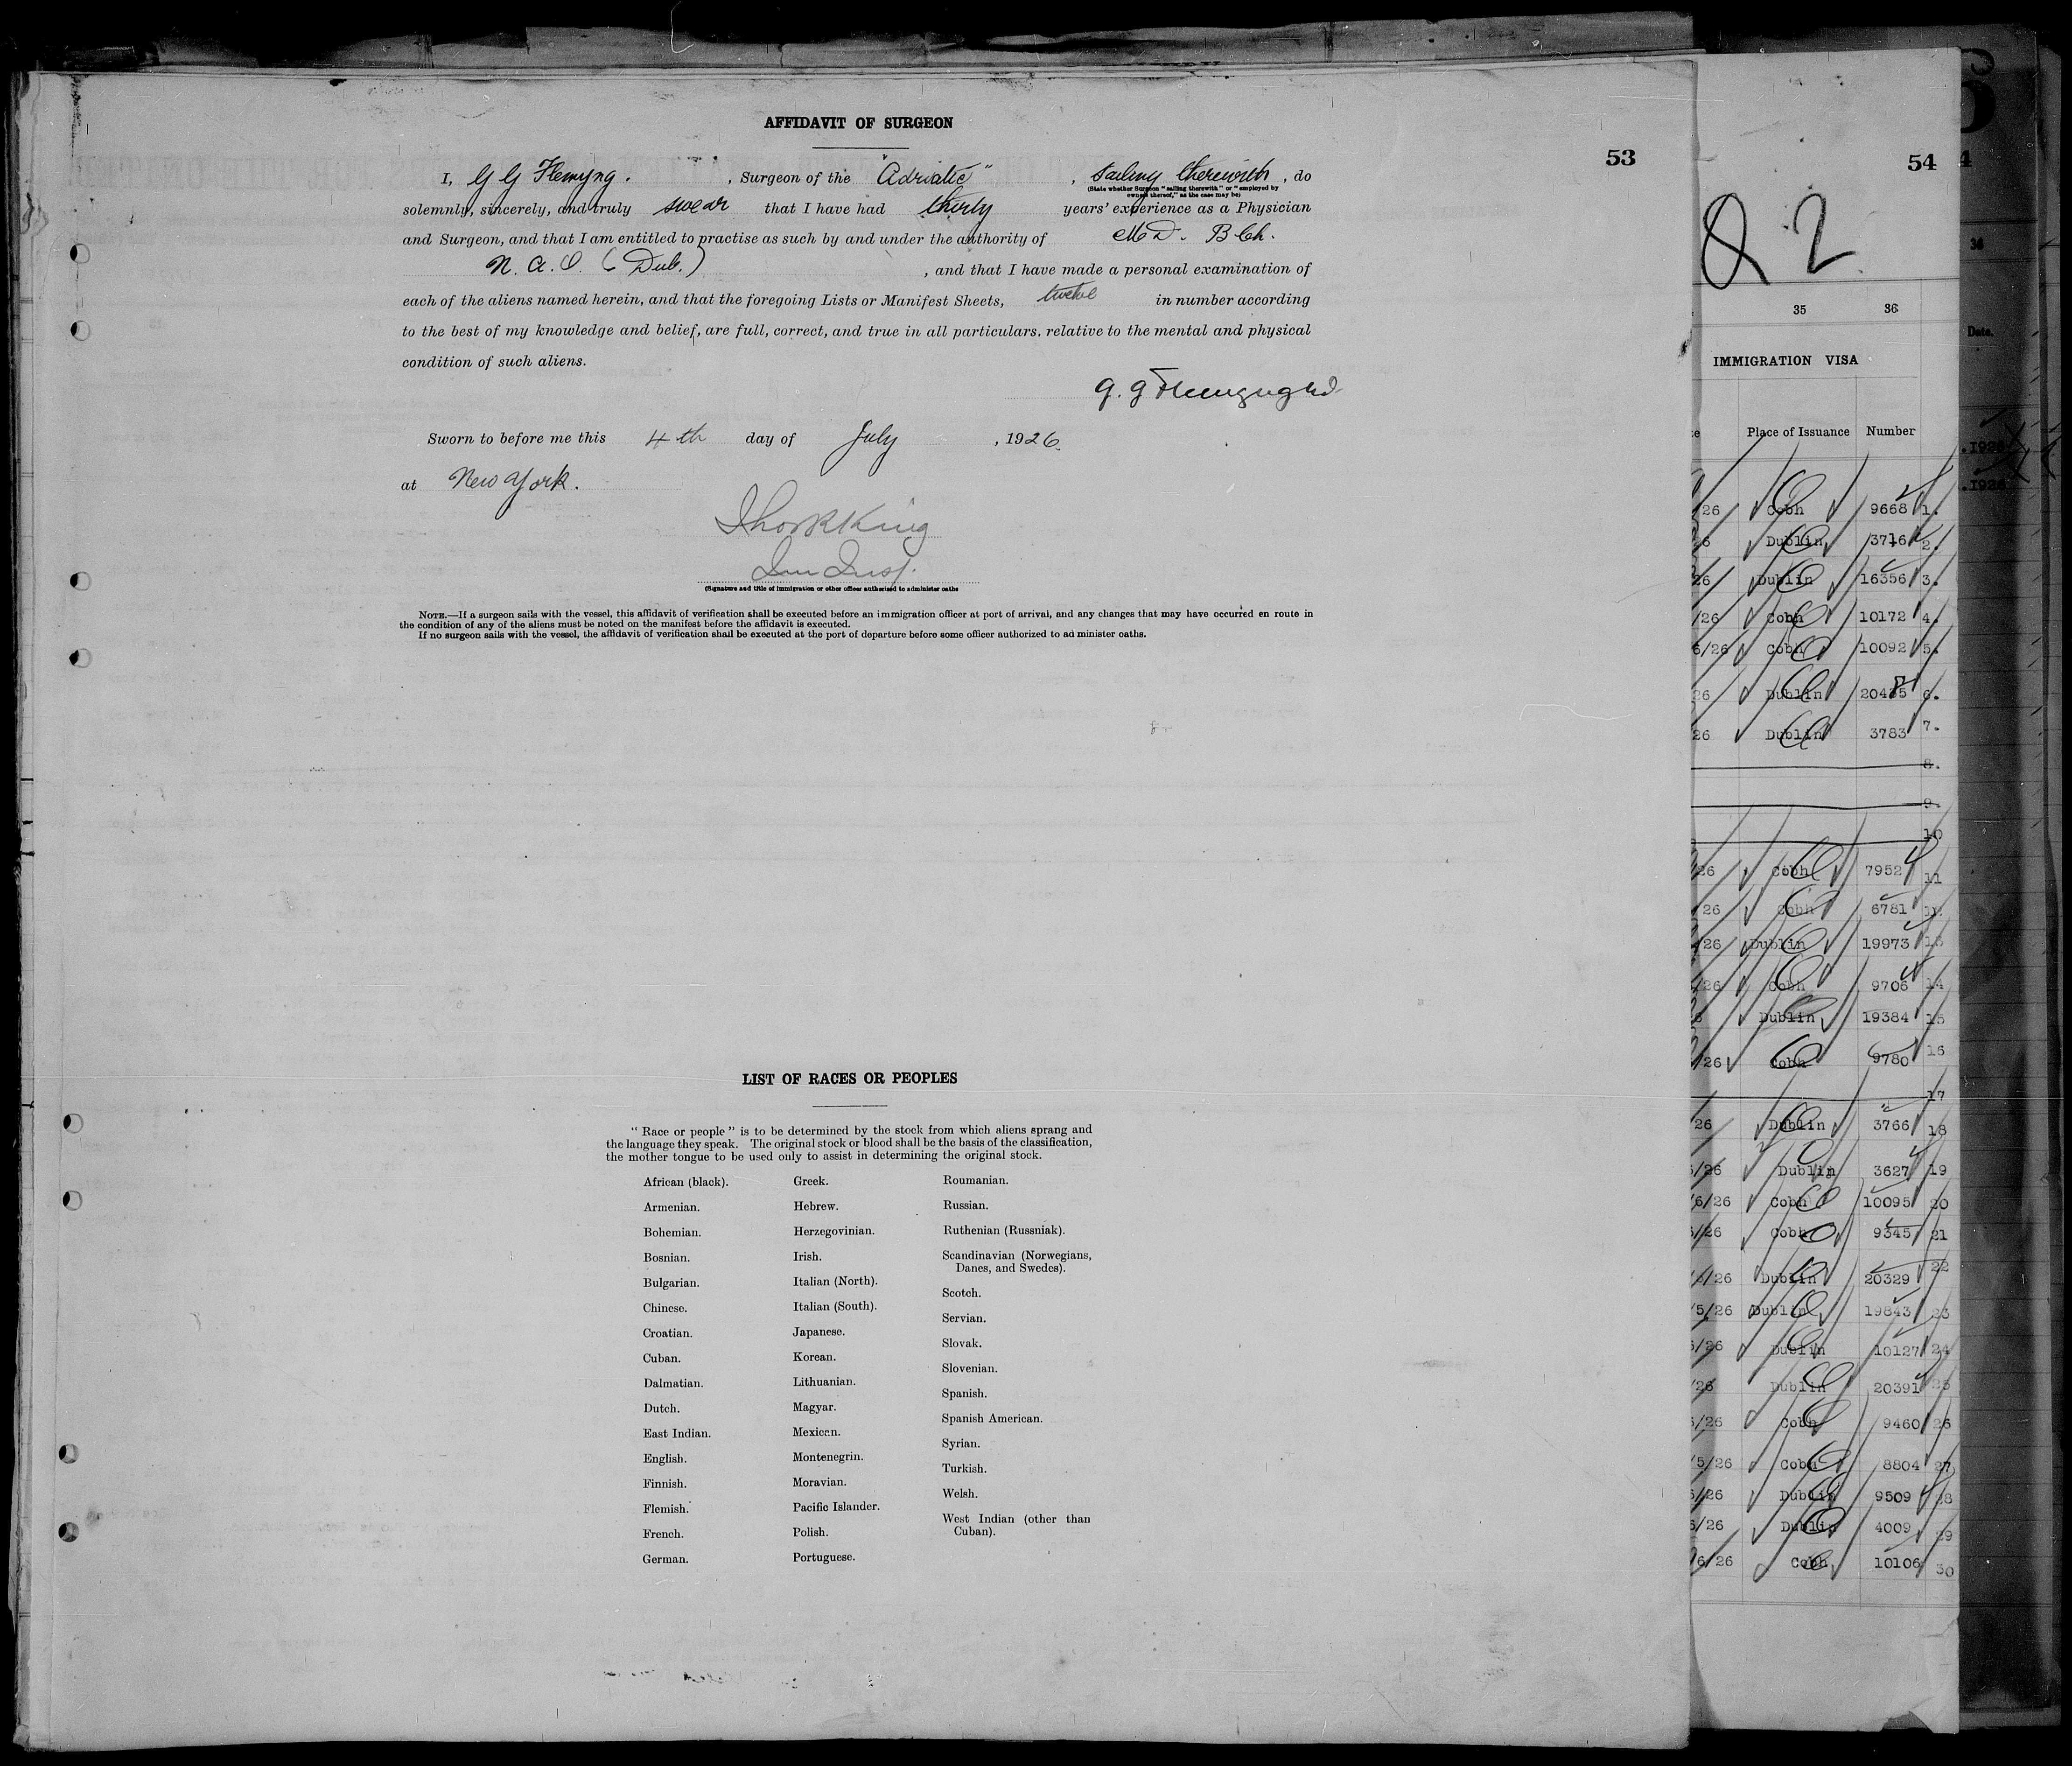 AFFIDAVIT OF SURGEON
53
I, G G Flemyng. , Surgeon of the "Adriatic" , sailing therewith , do
(State whether Surgeon "sailing therewith" or "employed by
owners thereof," as the case may be)
solemnly, sincerely, and truly swear that I have had thirty years' experience as a Physician
and Surgeon, and that I am entitled to practise as such by and under the authority of M.D. B Ch.
(Dub.) , and that I have made a personal examination of
each of the aliens named herein, and that the foregoing Lists or Manifest Sheets, twelve in number according
to the best of my knowledge and belief, are full, correct, and true in all particulars, relative to the mental and physical
condition of such aliens.
G. G Flemyng MD
Sworn to before me this 4th day of July , 1926.
at New York.
King
Imm Insp.
(Signature and title of immigration or other officer authorised to administer oaths
NOTE.—If a surgeon sails with the vessel, this affidavit of verification shall be executed before an immigration officer at port of arrival, and any changes that may have occurred en route in
the condition of any of the aliens must be noted on the manifest before the affidavit is executed.
If no surgeon sails with the vessel, the affidavit of verification shall be executed at the port of departure before some officer authorized to administer oaths.
LIST OF RACES OR PEOPLES
"Race or people" is to be determined by the stock from which aliens sprang and
the language they speak. The original stock or blood shall be the basis of the classification,
the mother tongue to be used only to assist in determining the original stock.
African (black).
Armenian.
Bohemian.
Bosnian.
Bulgarian.
Chinese.
Croatian.
Cuban.
Dalmatian.
Dutch.
East Indian.
English.
Finnish.
Flemish.
French.
German.
Greek.
Hebrew.
Herzegovinian.
Irish.
Italian (North).
Italian (South).
Japanese.
Korean.
Lithuanian.
Magyar.
Mexican.
Montenegrin.
Moravian.
Pacific Islander.
Polish.
Portuguese.
Roumanian.
Russian.
Ruthenian (Russniak).
Scandinavian (Norwegians,
Danes, and Swedes).
Scotch.
Servian.
Slovak.
Slovenian.
Spanish.
Spanish American.
Syrian.
Turkish.
Welsh.
West Indian (other than
Cuban).
54
82
35 36
IMMIGRATION VISA
Place of Issuance Number
26 Cobh 9668 1.
6 Dublin 3716 2.
26 Dublin 16356 3.
/26 Cobh 10172 4.
6/26 Cobh 10092 5.
26 Dublin 20485 6.
26 Dublin 3783 7.
8.
9.
10
26 Cobh 7952 11
26 Cobh 6781 12
/26 Dublin 19973 13
/26 Cobh 9706 14
6 Dublin 19384 15
/26 Cobh 9780 16
17
26 Dublin 3766 18
/26 Dublin 3627 19
/6/26 Cobh 10095 20
/26 Cobh 9345 21
/26 Dublin 20329 22
/5/26 Dublin 19843 23
/26 Dublin 10127 24
/26 Dublin 20391 25
/26 Cobh 9460 26
/5/26 Cobh 8804 27
/26 Dublin 9509 28
6/26 Dublin 4009 29
/6/26 Cobh 10106 30
4
36
Date.
.1926
.1926